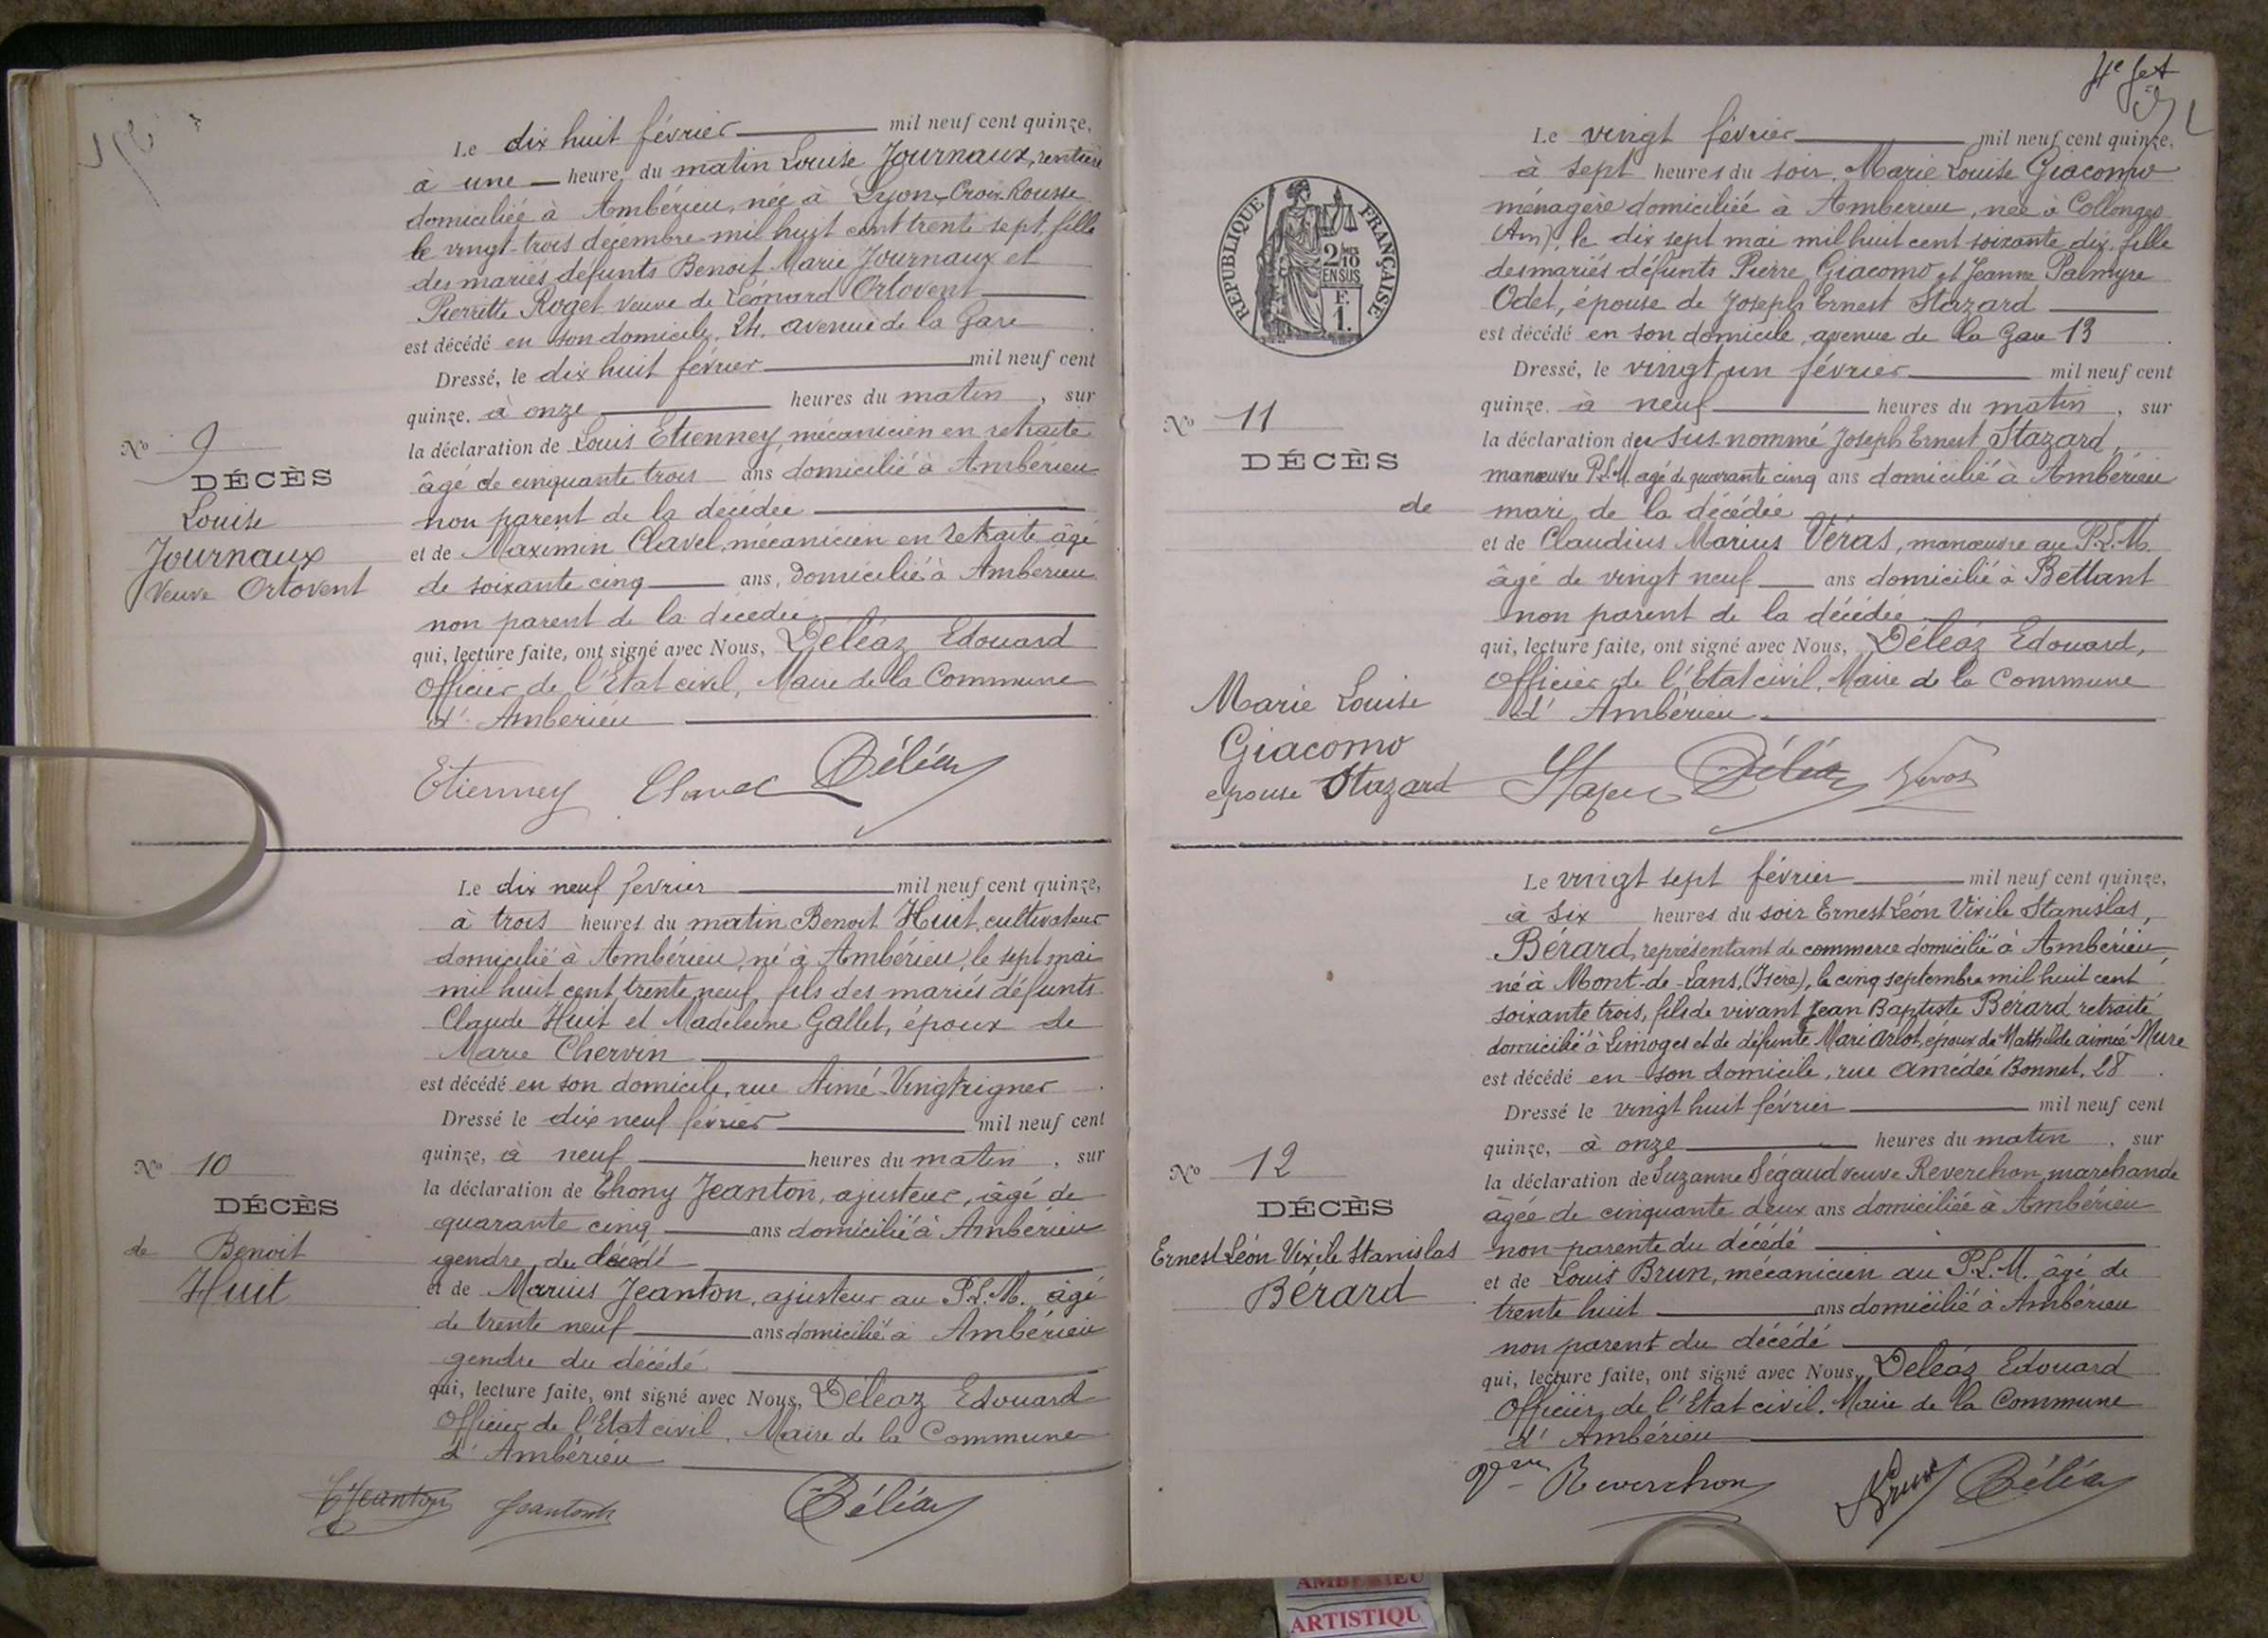 Le dix huit février mil neuf cent quinze,
à une heure du matin Louise Journaux, rentière
domiciliée à Ambérieu, née à Lyon-Croix-Rousse
le vingt-trois décembre mil huit cent trente sept, fille
des mariés défunts Benoit Marie Journaux et
Pierrette Roget veuve de Léonard Ortovent
est décédé en son domicile, 24, avenue de la Gare
Dressé, le dix huit février mil neuf cent
quinze, à onze heures du matin, sur
la déclaration de Louis Etienney, mécanicien en retraite
âgé de cinquante trois ans domicilié à Ambérieu
non parent de la décédée
et de Maximin Clavel, mécanicien en retraite âgé
de soixante cinq ans, domicilié à Ambérieu
non parent de la décédée
qui, lecture faite, ont signé avec Nous, Déléaz Edouard
Officier de l'Etat civil, Maire de la Commune
d'Ambérieu
Etienney Clavel Déléaz
No 9
DÉCÈS
Louise
Journaux
Veuve Ortovent
Le dix neuf février mil neuf cent quinze,
à trois heures du matin Benoit Huit, cultivateur
domicilié à Ambérieu, né à Ambérieu, le sept mai
mil huit cent trente neuf, fils des mariés défunts
Claude Huit et Madeleine Gallet, époux de
Marie Chervin
est décédé en son domicile, rue Aimé-Vingtrigner
Dressé le dix neuf février mil neuf cent
quinze, à neuf heures du matin, sur
la déclaration de Thony Jeanton, ajusteur, âgé de
quarante cinq ans domicilié à Ambérieu
gendre du décédé
et de Marius Jeanton, ajusteur au P.L.M. âgé
de trente neuf ans domicilié à Ambérieu
gendre du décédé
qui, lecture faite, ont signé avec Nous, Déléaz Edouard
Officier de l'Etat civil, Maire de la Commune
d'Ambérieu
Jeanton Jeanton Déléaz
No 10
DÉCÈS
de Benoit
Huit
4e
REPUBLIQUE FRANÇAISE
2/10
EN SUS
F.
1.
Le vingt février mil neuf cent quinze,
à sept heures du soir, Marie Louise Giacomo
ménagère domiciliée à Ambérieu, née à Collonges
(Ain), le dix sept mai mil huit cent soixante dix, fille
des mariés défunts Pierre Giacomo et Jeanne Palmyre
Odet, épouse de Joseph Ernest Stazard
est décédé en son domicile, avenue de la Gare 13
Dressé, le vingt un février mil neuf cent
quinze, à neuf heures du matin, sur
la déclaration du sus-nommé Joseph Ernest Stazard,
manœuvre P.L.M. âgé de quarante cinq ans domicilié à Ambérieu
mari de la décédée
et de Claudius Marius Véras, manœuvre au P.L.M.
âgé de vingt neuf ans domicilié à Bettant
non parent de la décédée
qui, lecture faite, ont signé avec Nous, Déléaz Edouard,
Officier de l'Etat civil, Maire de la Commune
d'Ambérieu
Déléaz Véras
No 11
DÉCÈS
de
Marie Louise
Giacomo
épouse Stazard
Le vingt sept février mil neuf cent quinze,
à six heures du soir Ernest Léon Vixile Stanislas,
Bérard, représentant de commerce domicilié à Ambérieu,
né à Mont-de-Lans, (Isère), le cinq septembre mil huit cent
soixante trois, fils de vivant Jean Baptiste Bérard retraité
domicilié à Limoges et de défunte Marie Arlot, époux de Mathilde aimée Mure
est décédé en son domicile, rue Amédée Bonnet, 28
Dressé le vingt huit février mil neuf cent
quinze, à onze heures du matin, sur
la déclaration de Suzanne Ségaud veuve Reverchon, marchande
âgée de cinquante deux ans domiciliée à Ambérieu
non parente du décédé
et de Louis Brun, mécanicien au P.L.M. âgé de
trente huit ans domicilié à Ambérieu
non parent du décédé
qui, lecture faite, ont signé avec Nous, Déléaz Edouard
Officier de l'Etat civil, Maire de la Commune
d'Ambérieu
Vve Reverchon Brun Déléaz
No 12
DÉCÈS
Ernest Léon Vixile Stanislas
Bérard
AMBERIEU
ARTISTIQU